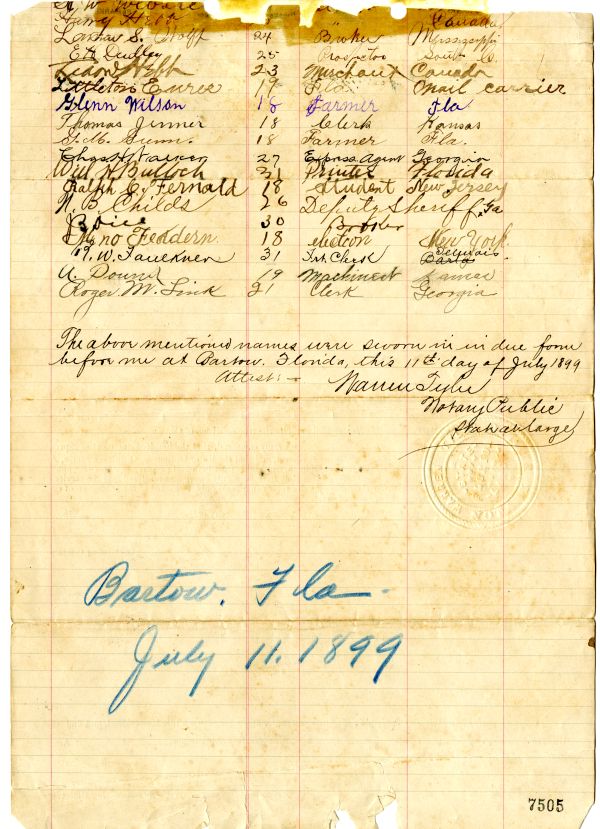 Canada
Harry Hebb
S. Holt 24 Broker Mississippi
E H Dudley 25 Prospector South C
Hebb 23 Merchant Canada
Littleton 19 Fla mail carrier
Glenn Wilson 18 Farmer Fla
Thomas Jenner 18 Clerk Kansas
18 Farmer Fla.
Chas H Walker 27 Express Agent Georgia
Will H Bulloch 21 Printer Florida
Ralph E. Fernald 18 student New Jersey
N. B. Childs 26 Deputy Sheriff, Ga
Boice 30 Broker
Feddern 18 New York
W. Faulkner 31 Clerk Bartow
A 19 Machinest
Roger M. Link 21 Clerk Georgia
The above mentioned names were sworn in in due form
before me at Bartow. Florida, this 11th day of July 1899
Attest: - Warren Tyler
Notary Public
State at Large
Bartow. Fla -
July 11. 1899
7505